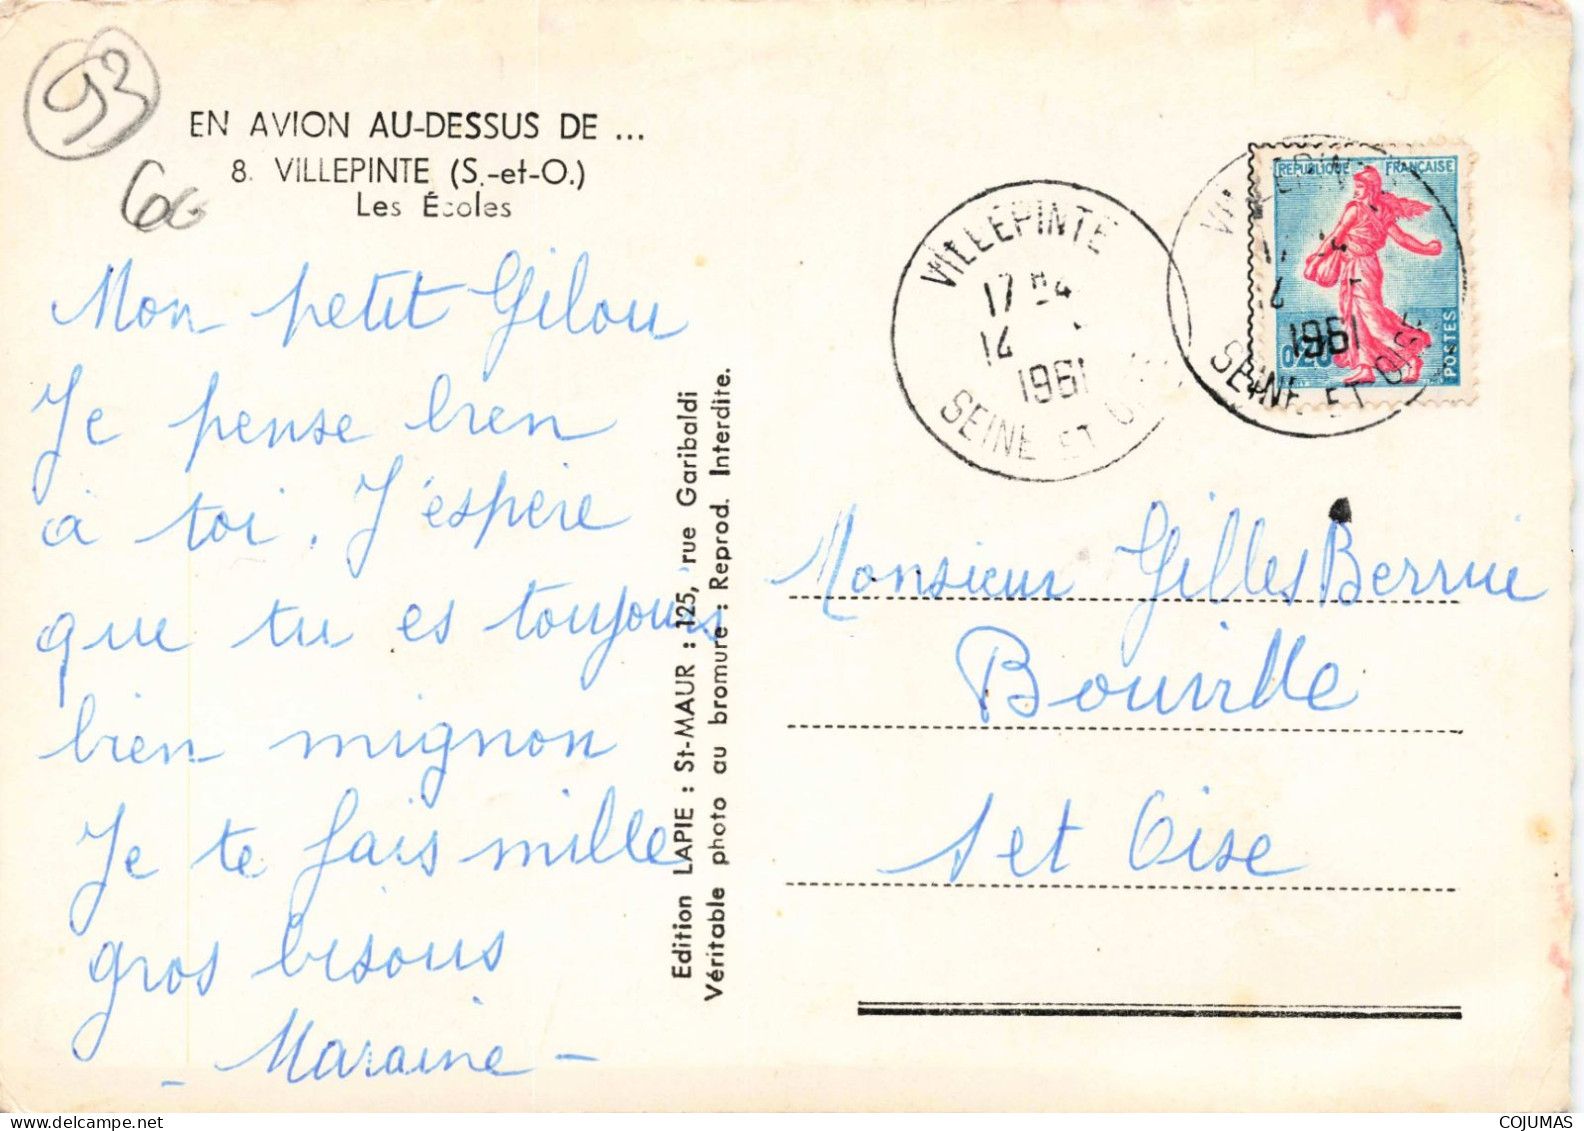 93
EN AVION AU-DESSUS DE ...
8. VILLEPINTE (S.-et-O.)
Les Écoles
Mon petit Gilou
Je pense bien
à toi. J'espère
que tu es toujours
bien mignon
Je te fais mille
gros bisous
- Maraine -
Edition LAPIE : St-MAUR : 125, rue Garibaldi
Véritable photo au bromure : Reprod. Interdite.
VILLEPINTE
17 H
1961
SEINE ET OISE
RÉPUBLIQUE FRANÇAISE
POSTES
VILLEPINTE
1961
SEINE ET OISE
Monsieur Gilles Berrue
Bouville
S et Oise
COJUMAS